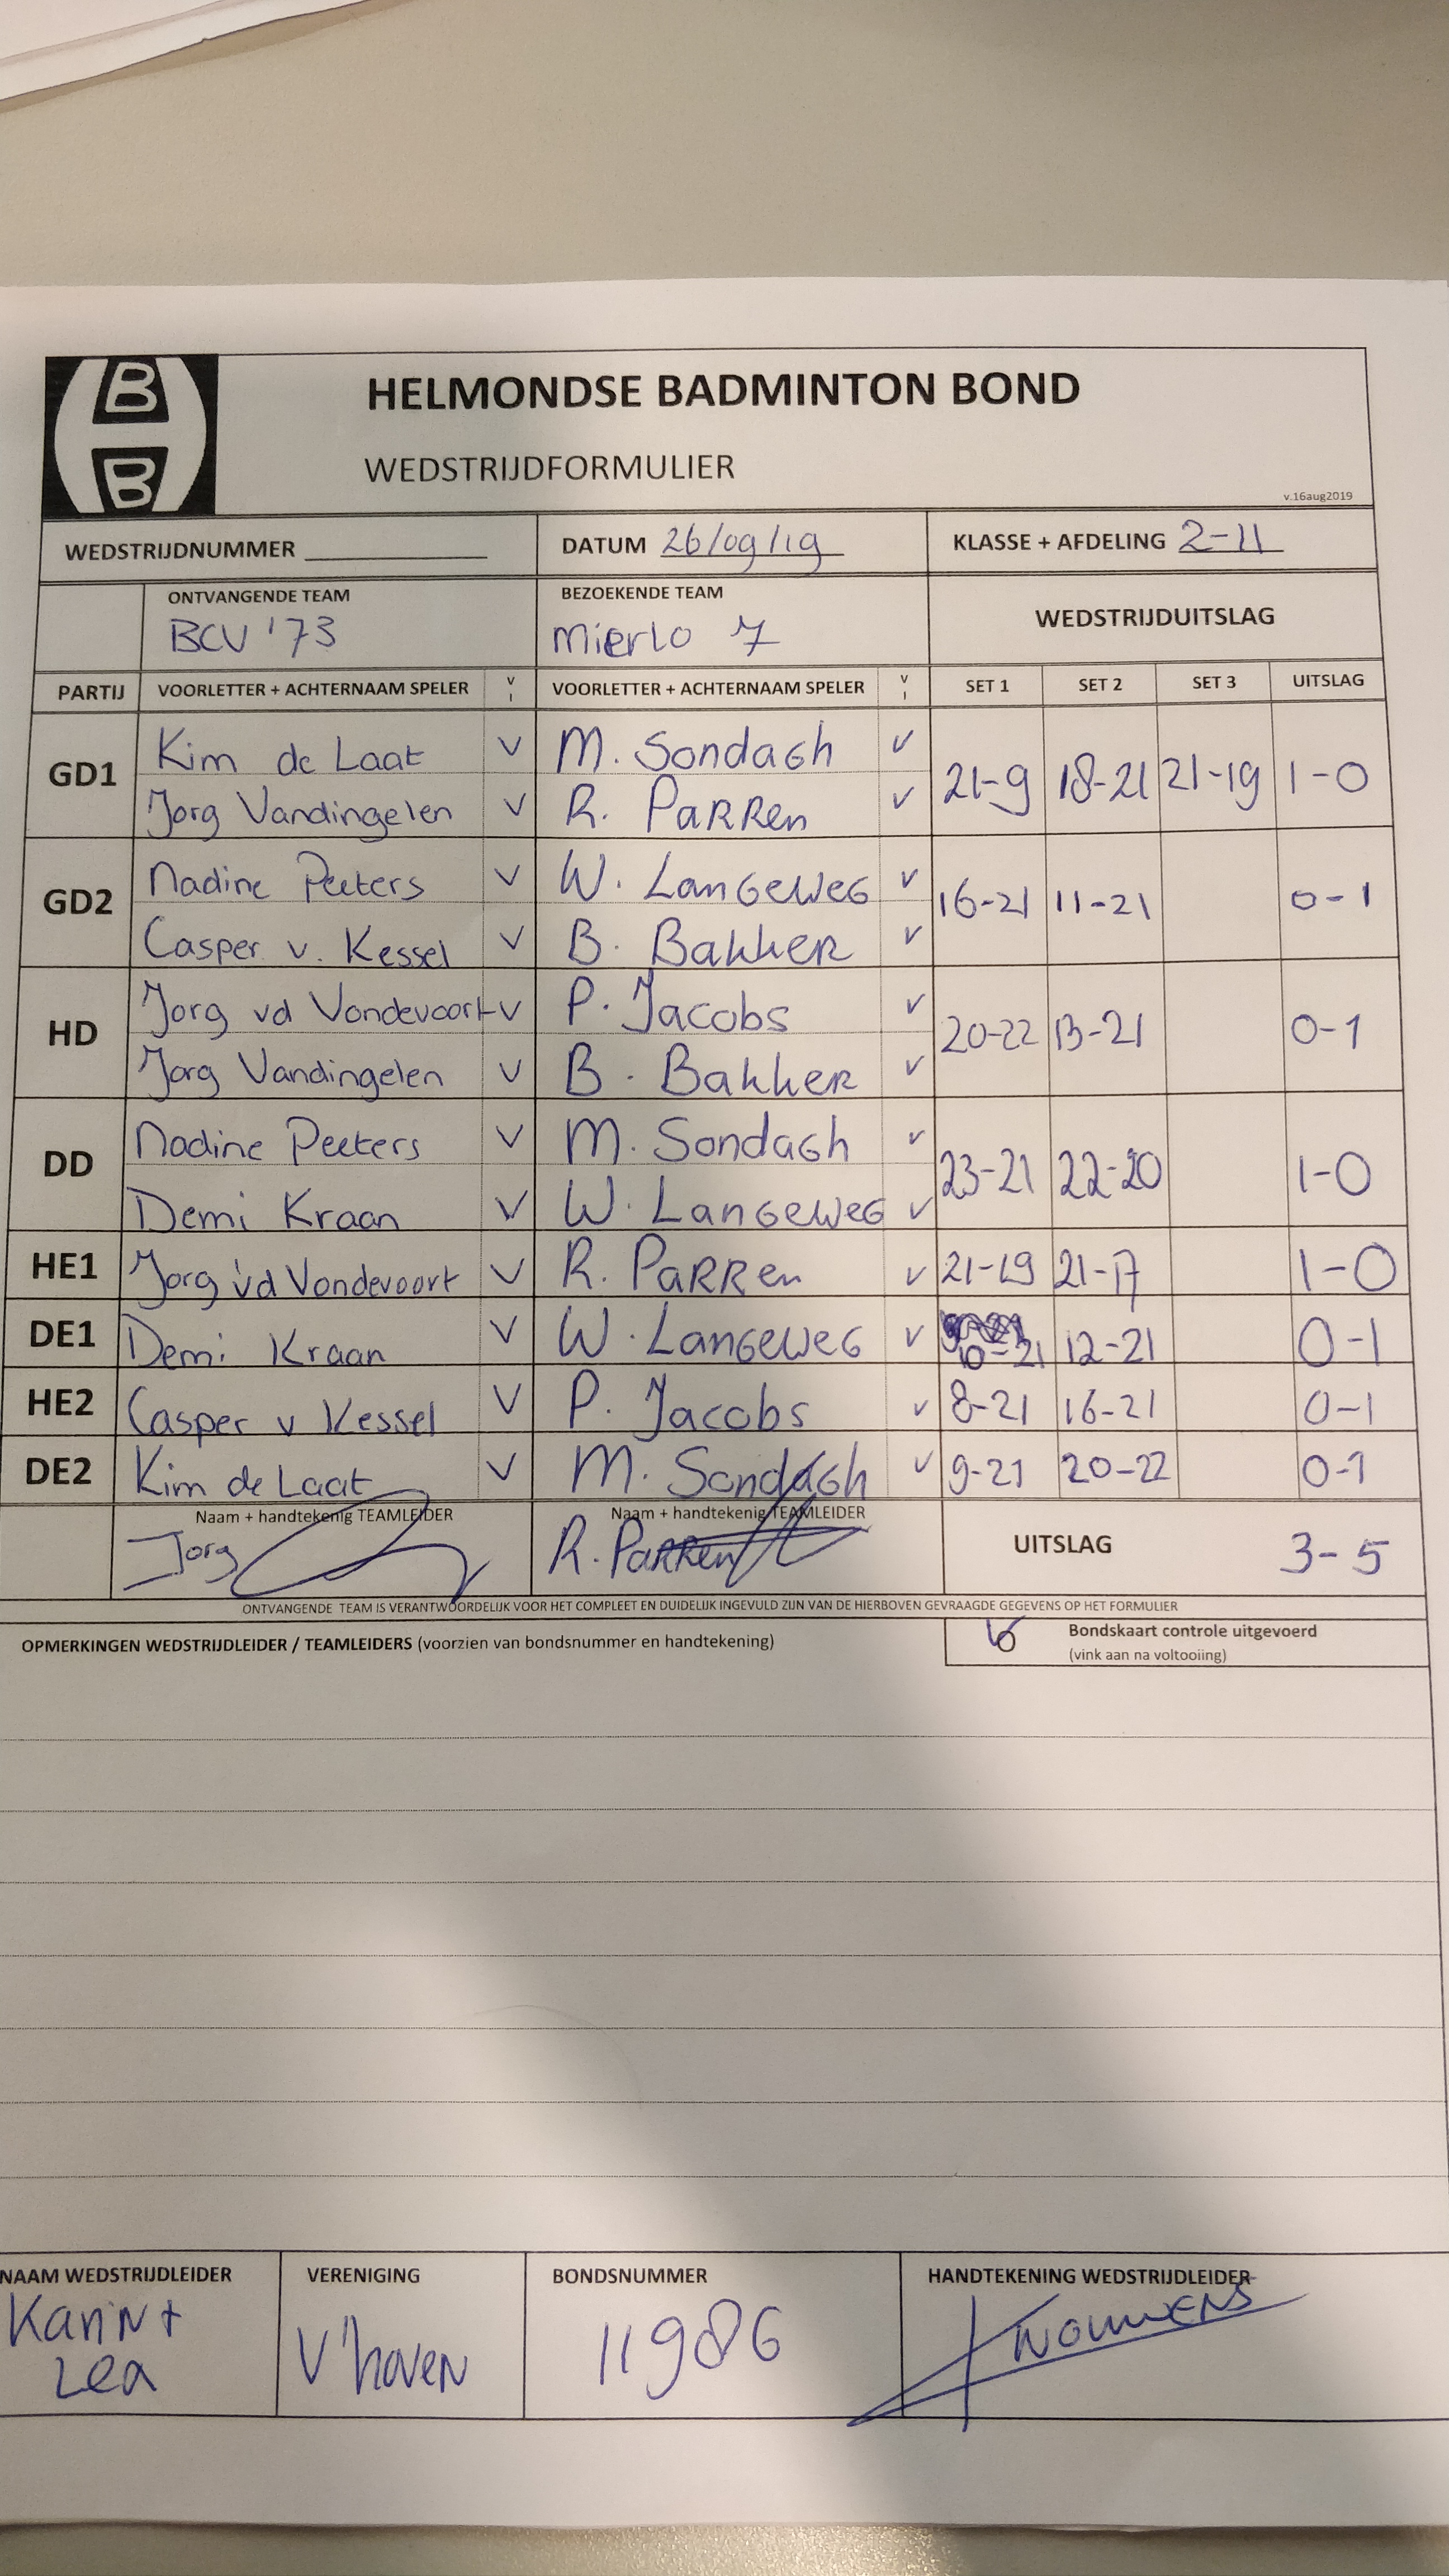 B
B
HELMONDSE BADMINTON BOND
WEDSTRIJDFORMULIER
v.16aug2019
WEDSTRIJDNUMMER DATUM 26/09/19 KLASSE + AFDELING 2-11
ONTVANGENDE TEAM BEZOEKENDE TEAM WEDSTRIJDUITSLAG
BCV '73 Mierlo 7
PARTIJ VOORLETTER + ACHTERNAAM SPELER V I VOORLETTER + ACHTERNAAM SPELER V I SET 1 SET 2 SET 3 UITSLAG
GD1 Kim de Laat V M. Sondagh V 21-9 18-21 21-19 1-0
Jorg Vandingelen V R. Parren V
GD2 Nadine Peeters V W. Langeweg V 16-21 11-21 0-1
Casper v. Kessel V B. Bakker V
HD Jorg vd Vondevoort V P. Jacobs V 20-22 13-21 0-1
Jorg Vandingelen V B. Bakker V
DD Nadine Peeters V M. Sondagh V 23-21 22-20 1-0
Demi Kraan V W. Langeweg V
HE1 Jorg vd Vondevoort V R. Parren V 21-19 21-17 1-0
DE1 Demi Kraan V W. Langeweg V 10-21 12-21 0-1
HE2 Casper v Kessel V P. Jacobs V 8-21 16-21 0-1
DE2 Kim de Laat V M. Sondagh V 9-21 20-22 0-1
Naam + handtekenig TEAMLEIDER Naam + handtekenig TEAMLEIDER UITSLAG 3-5
Jorg R. Parren
ONTVANGENDE TEAM IS VERANTWOORDELIJK VOOR HET COMPLEET EN DUIDELIJK INGEVULD ZIJN VAN DE HIERBOVEN GEVRAAGDE GEGEVENS OP HET FORMULIER
OPMERKINGEN WEDSTRIJDLEIDER / TEAMLEIDERS (voorzien van bondsnummer en handtekening)
Bondskaart controle uitgevoerd
(vink aan na voltooiing)
NAAM WEDSTRIJDLEIDER VERENIGING BONDSNUMMER HANDTEKENING WEDSTRIJDLEIDER
Karin + V'hoven 11986 Wouwens
Lea